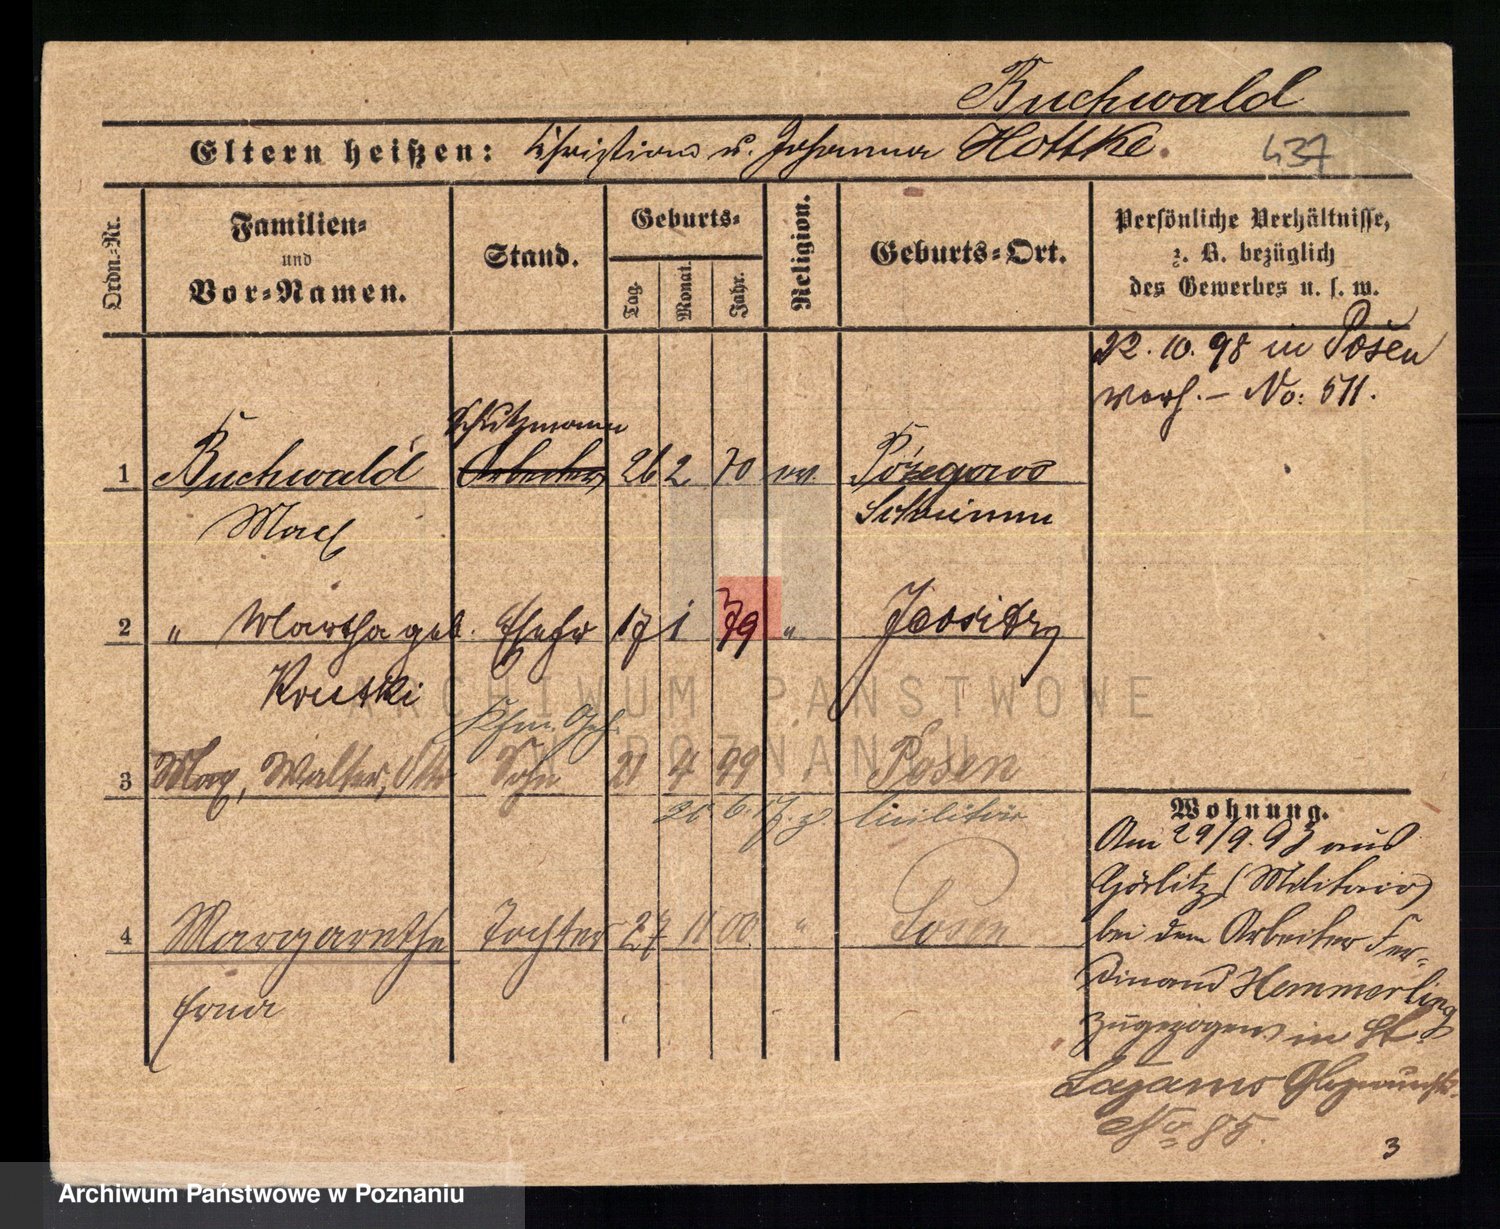 Buchwald
Eltern heißen: Christian u. Johanna Hottke.
437
Ordn.-Nr.
Familien-
und
Vor-Namen.
Stand.
Geburts-
Tag.
Monat.
Jahr.
Religion.
Geburts-Ort.
Persönliche Verhältnisse,
z. B. bezüglich
des Gewerbes u. s. w.
22. 10. 98 in Posen
verh. – No: 511.
Schutzmann
1 Buchwald Arbeiter 26 2 70 ev.
Max Schrimm
2 " Martha geb. Ehefr 17 1 79 "
3 Max, Walter, Otto Sohn 21 4 99 Posen
z. Militär
4 Margarethe Tochter 27 11 00 " Posen
Erna
Wohnung.
Am 29/9. 93 aus
Görlitz (Militair)
bei dem Arbeiter Fer-
dinand Hemmerling
zugezogen in St.
Lazarus
No 85.
3
ARCHIWUM PAŃSTWOWE
W POZNANIU
Archiwum Państwowe w Poznaniu